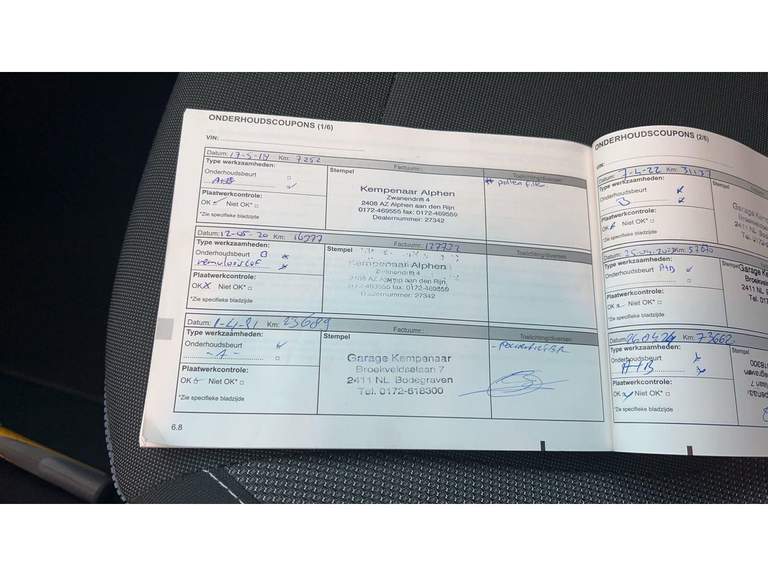 ONDERHOUDSCOUPONS (1/6)
VIN:
Datum: 17-5-19 Km: 7252 Factuurnr.: Toelichting/diversen
Type werkzaamheden: Stempel # pollen filter
Onderhoudsbeurt
A+B
Kempenaar Alphen
Zwanendrift 4
2408 AZ Alphen aan den Rijn
0172-469555 fax: 0172-469559
Dealernummer: 27342
Plaatwerkcontrole:
OK Niet OK*
*Zie specifieke bladzijde
Datum: 12-05-20 Km: 16777 Factuurnr.: Toelichting/diversen
Type werkzaamheden: Stempel
Onderhoudsbeurt B
remvloeistof
Kempenaar Alphen
Zwanendrift 4
2408 AZ Alphen aan den Rijn
0172-469555 fax: 0172-469559
Dealernummer: 27342
Plaatwerkcontrole:
OK X Niet OK*
*Zie specifieke bladzijde
Datum: 1-4-21 Km: 23689 Factuurnr.: Toelichting/diversen
Type werkzaamheden: Stempel
Onderhoudsbeurt
- A -
- POLLENFILTER
Garage Kempenaar
Broekveldselaan 7
2411 NL Bodegraven
Tel. 0172-618300
Plaatwerkcontrole:
OK Niet OK*
*Zie specifieke bladzijde
6.8
ONDERHOUDSCOUPONS (2/6)
VIN:
Datum: 7-4-22 Km:
Type werkzaamheden: Stempel
Onderhoudsbeurt
B
Garage Ke
Broekveld
2411 NL
Tel. 0172
Plaatwerkcontrole:
OK Niet OK*
*Zie specifieke bladzijde
Datum: 25-04-2023 Km:
Type werkzaamheden: Stempel
Onderhoudsbeurt A+B
Garage Kem
Broekveldse
2411 NL Bo
Tel. 0172-6
Plaatwerkcontrole:
OK Niet OK*
*Zie specifieke bladzijde
Datum: 26.04.24 Km: 73662
Type werkzaamheden: Stempel
Onderhoudsbeurt
A+B
Plaatwerkcontrole:
OK Niet OK*
*Zie specifieke bladzijde